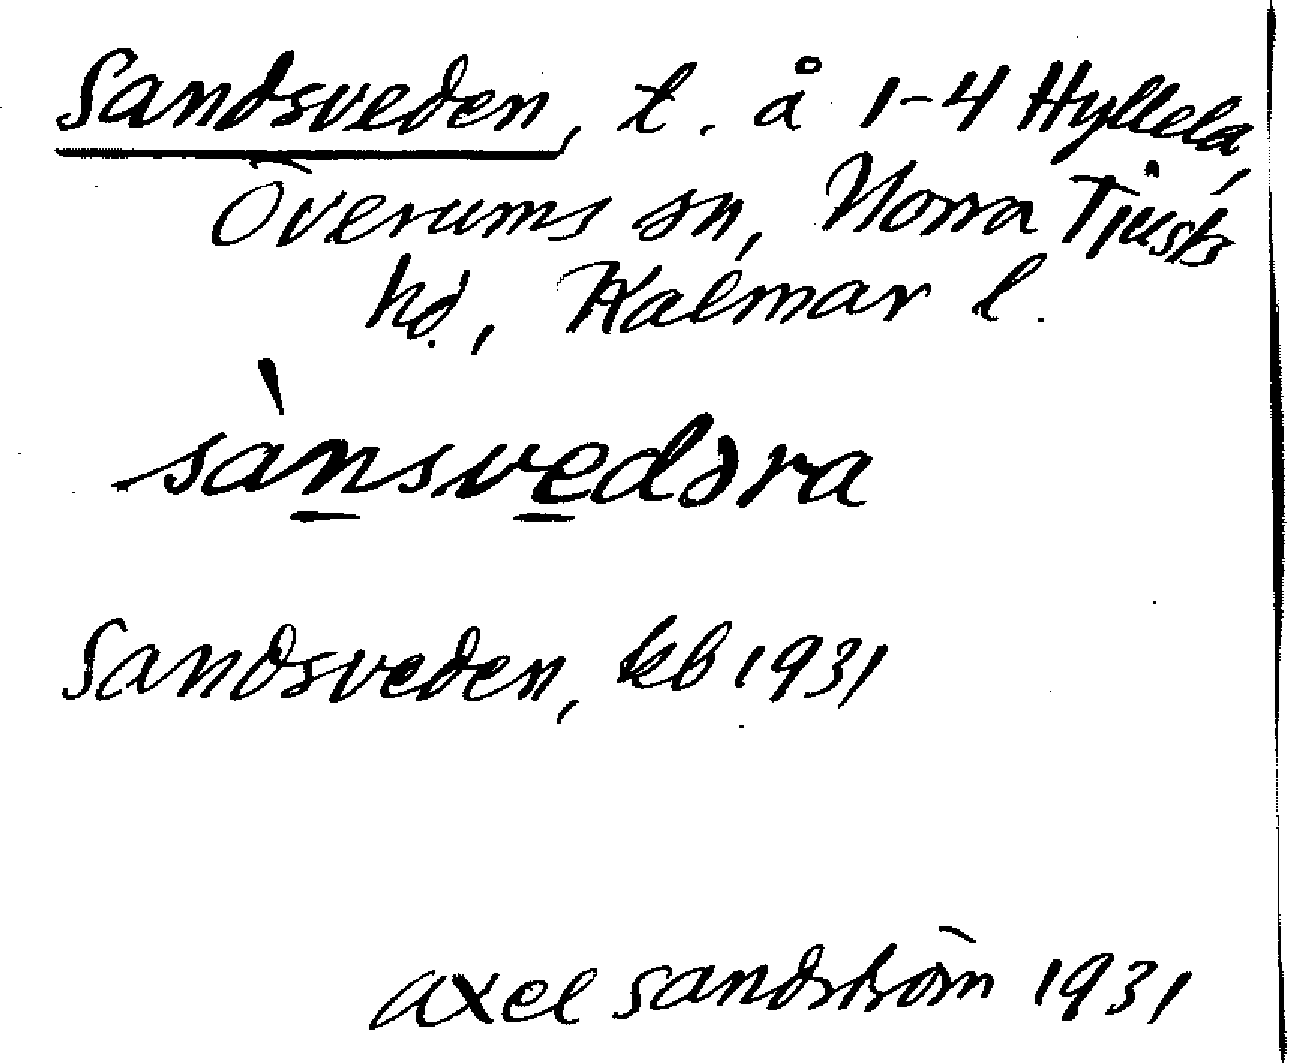 Sandsveden, t. å 1-4 Hyllela,
Överums sn, Norra Tjusts
hd., Kalmar l.
sànsvedəra
Sandsveden, kb 1931
axel sandström 1931